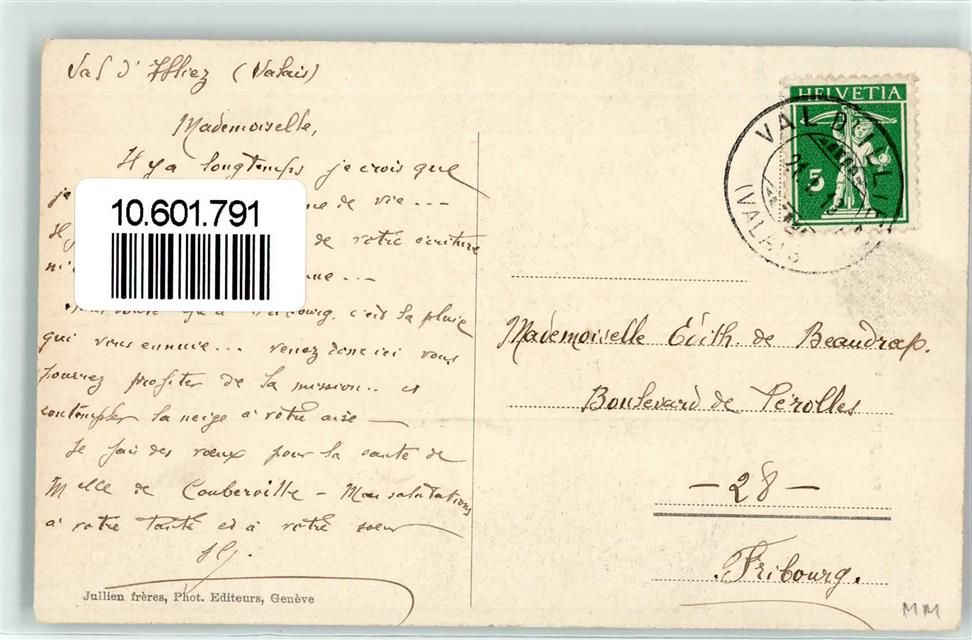 Val d'Illiez (Valais)
Mademoiselle,
Il y a longtemps je crois que
je de vie ---
de votre écriture
---
10.601.791
c'est la pluie
qui vous ennuie... venez donc ici vous
pourrez profiter de la mission.. et
contempler la neige à votre aise —
Je fais des vœux pour la santé de
Melle de Couberville – Mes salutations
à votre tante et à votre sœur
Jullien frères, Phot. Editeurs, Genève
HELVETIA
5
VAL D'ILLIEZ
(VALAIS)
Mademoiselle Édith. de Beaudrap.
Boulevard de Pérolles
– 28 –
Fribourg.
MM